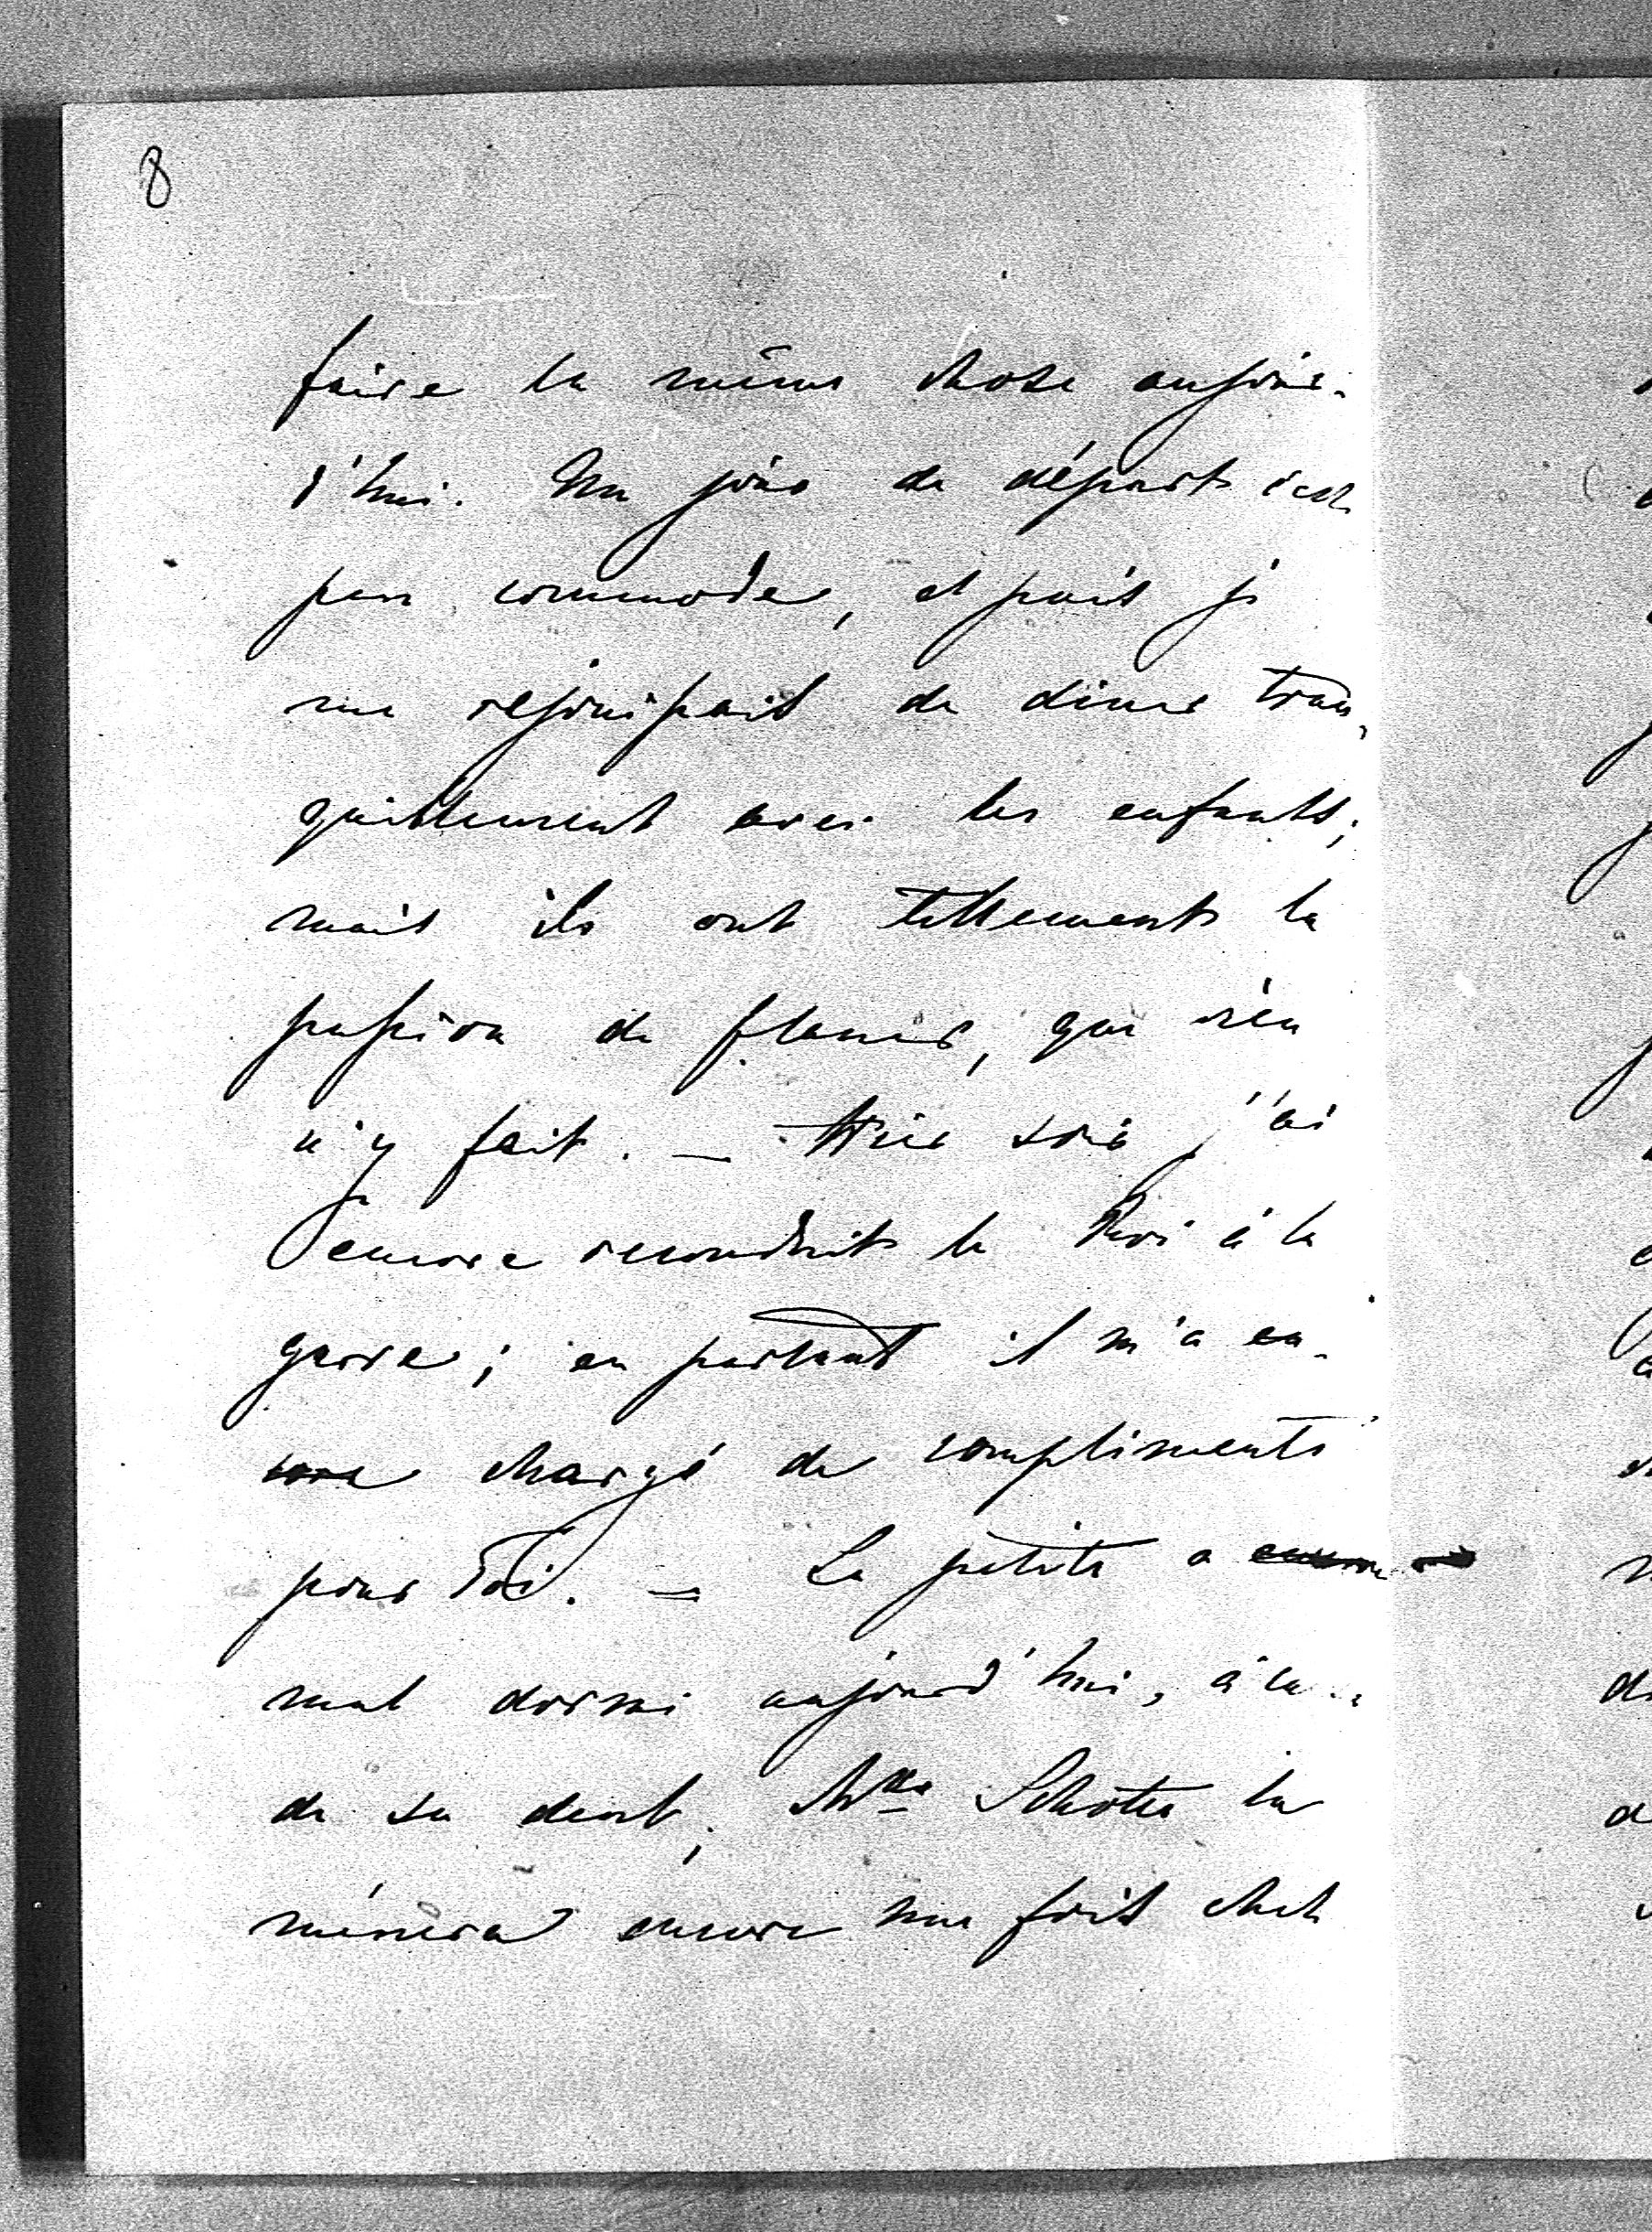 8
faire la même chose aujour-
d'hui. Un jour de départ c'est
peu commode, et puis je
me rejouissais de diner tran-
quillement avec les enfants;
mais ils ont tellement la
passion de flaner, que rien
n'y fait. — Hier soir j'ai
encore reconduit le Roi à la
garre; en partant il m'a en-
core chargé de compliments
pour Toi. — La petite a encore
mal dormi aujourd'hui, à cause
de sa dent; Mlle Schoter la
ménera encore une fois chez